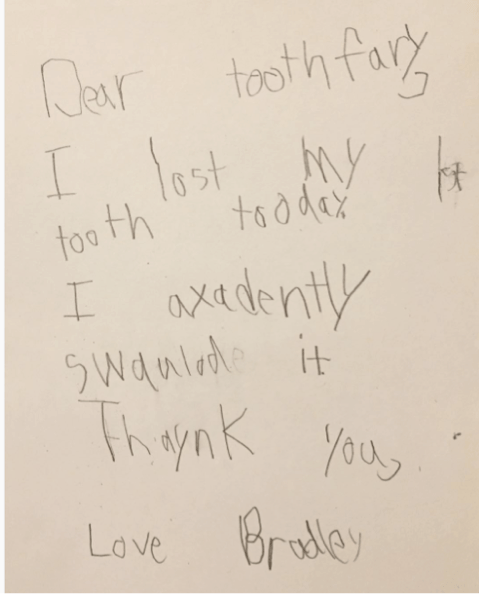 Dear toothfary
I lost my
tooth toodax
I axadently
swaulode it
Thaynk you,
Love Bradley